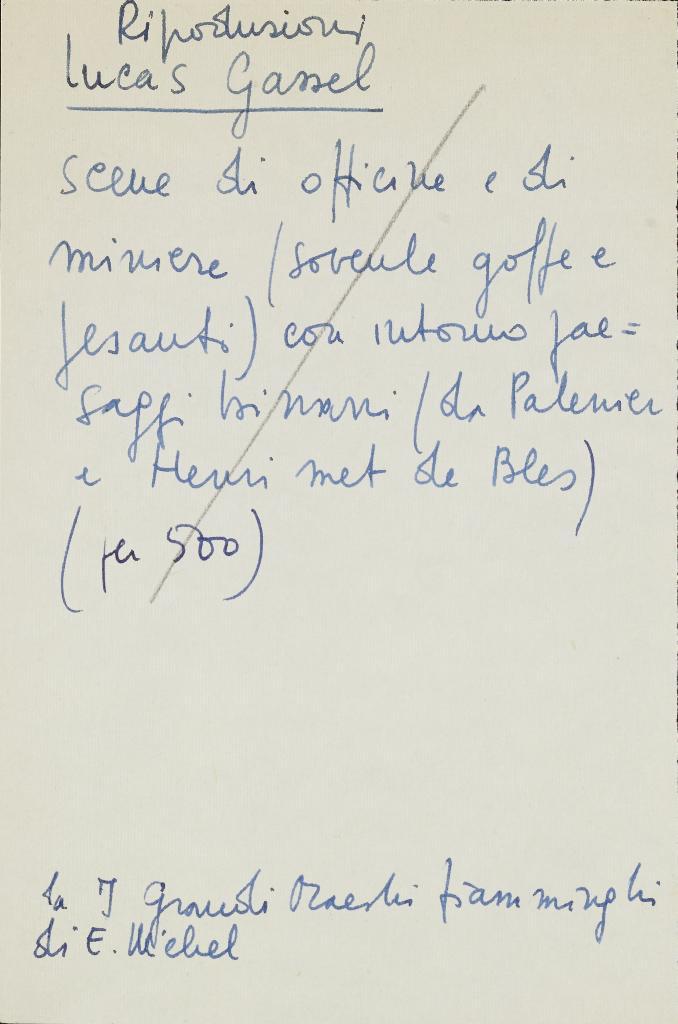 Riproduzioni
Lucas Gassel
scene di officine e di
miniere (sovente goffe e
pesanti) con intorno pae=
saggi bizzarri (da Patenier
e Henri met de Bles)
(per 500)
da I Grandi Maestri fiamminghi
di E. Michel